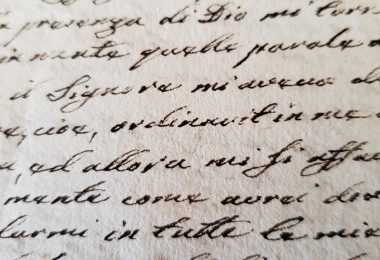 presenza di Dio mi torn
innante quelle parole
il Signore mi aveva d
cioè, ordinavit in me
ed allora mi si affac
mente come avrei dov
larmi in tutte le mie